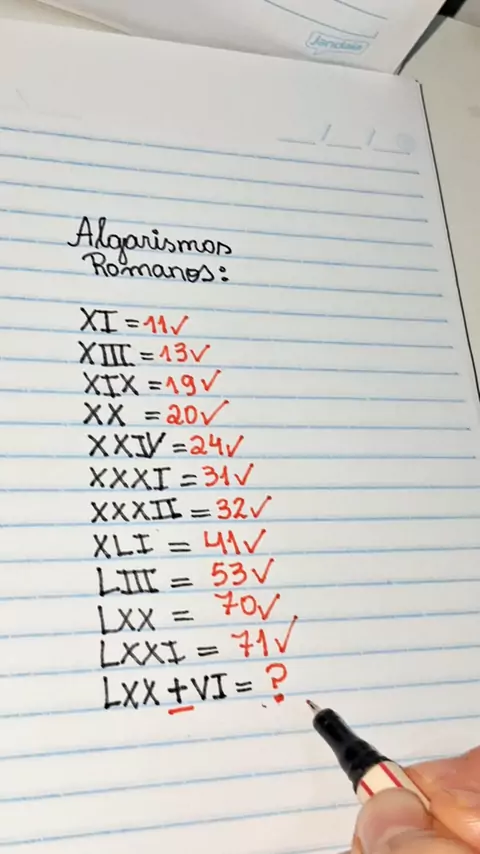 Jandaia
__/__/__
Algarismos
Romanos:
XI = 11✓
XIII = 13✓
XIX = 19✓
XX = 20✓
XXIV = 24✓
XXXI = 31✓
XXXII = 32✓
XLI = 41✓
LIII = 53✓
LXX = 70✓
LXXI = 71✓
LXX + VI = ?